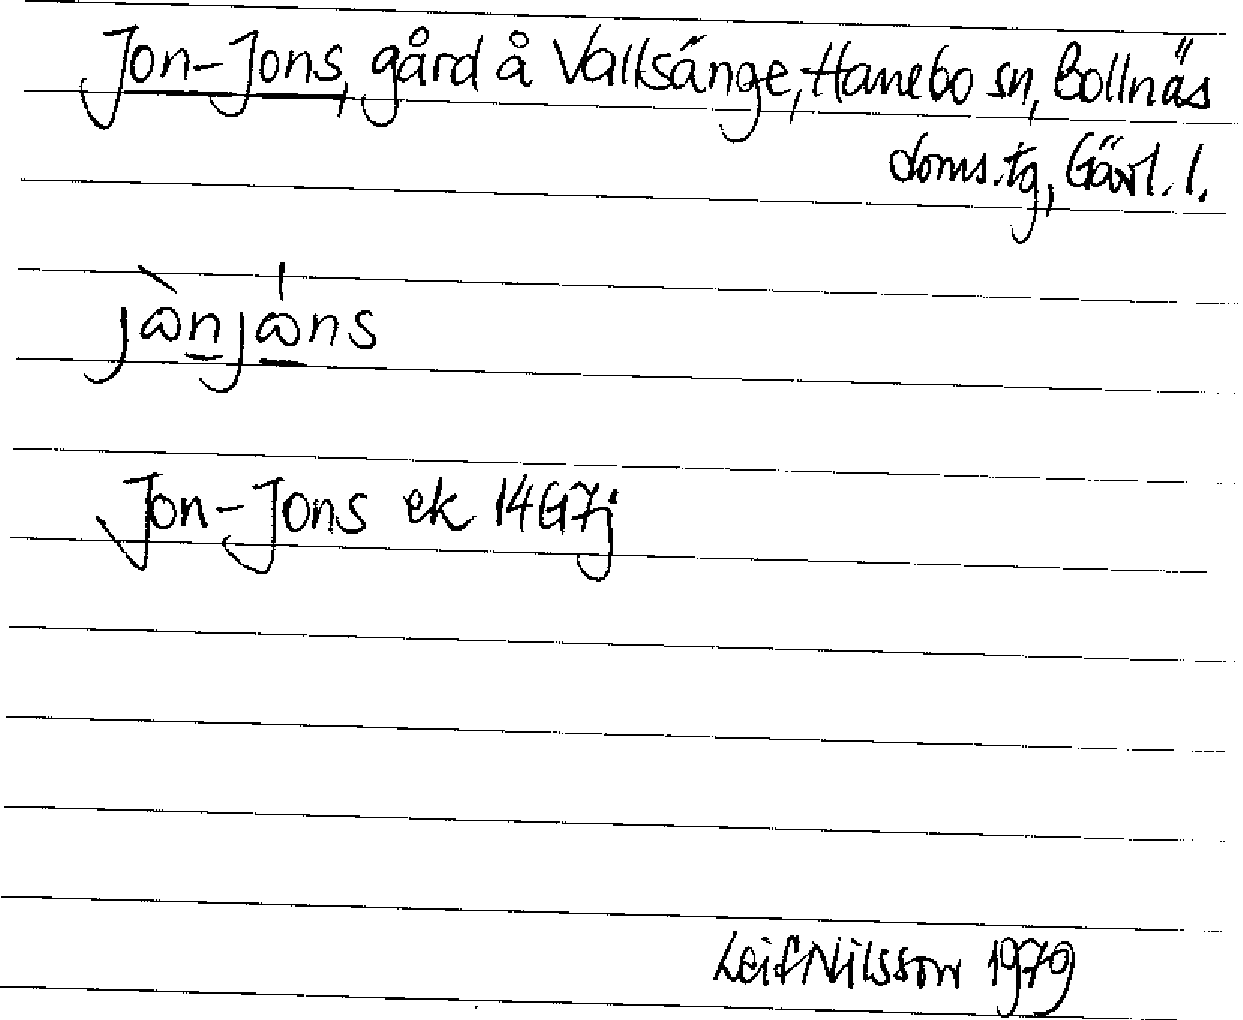 Jon-Jons, gård å Vallsänge, Hanebo sn, Bollnäs
doms.tg, Gävl. l.
jòn jóns
Jon-Jons ek 14G7j
Leif Nilsson 1979